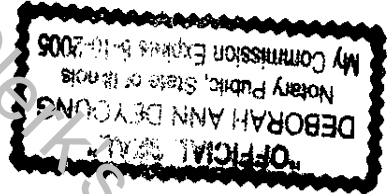 "OFFICIAL SEAL"
DEBORAH ANN DEYOUNG
Notary Public, State of Illinois
My Commission Expires 5-10-2005
Clerk's